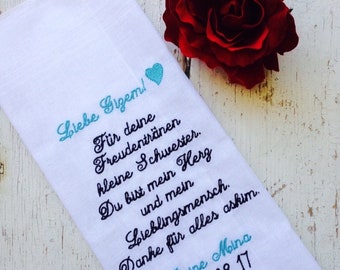 Liebe Gizem!
Für deine
Freudentränen
kleine Schwester.
Du bist mein Herz
und mein
Lieblingsmensch.
Danke für alles askim.
Deine Mina
17